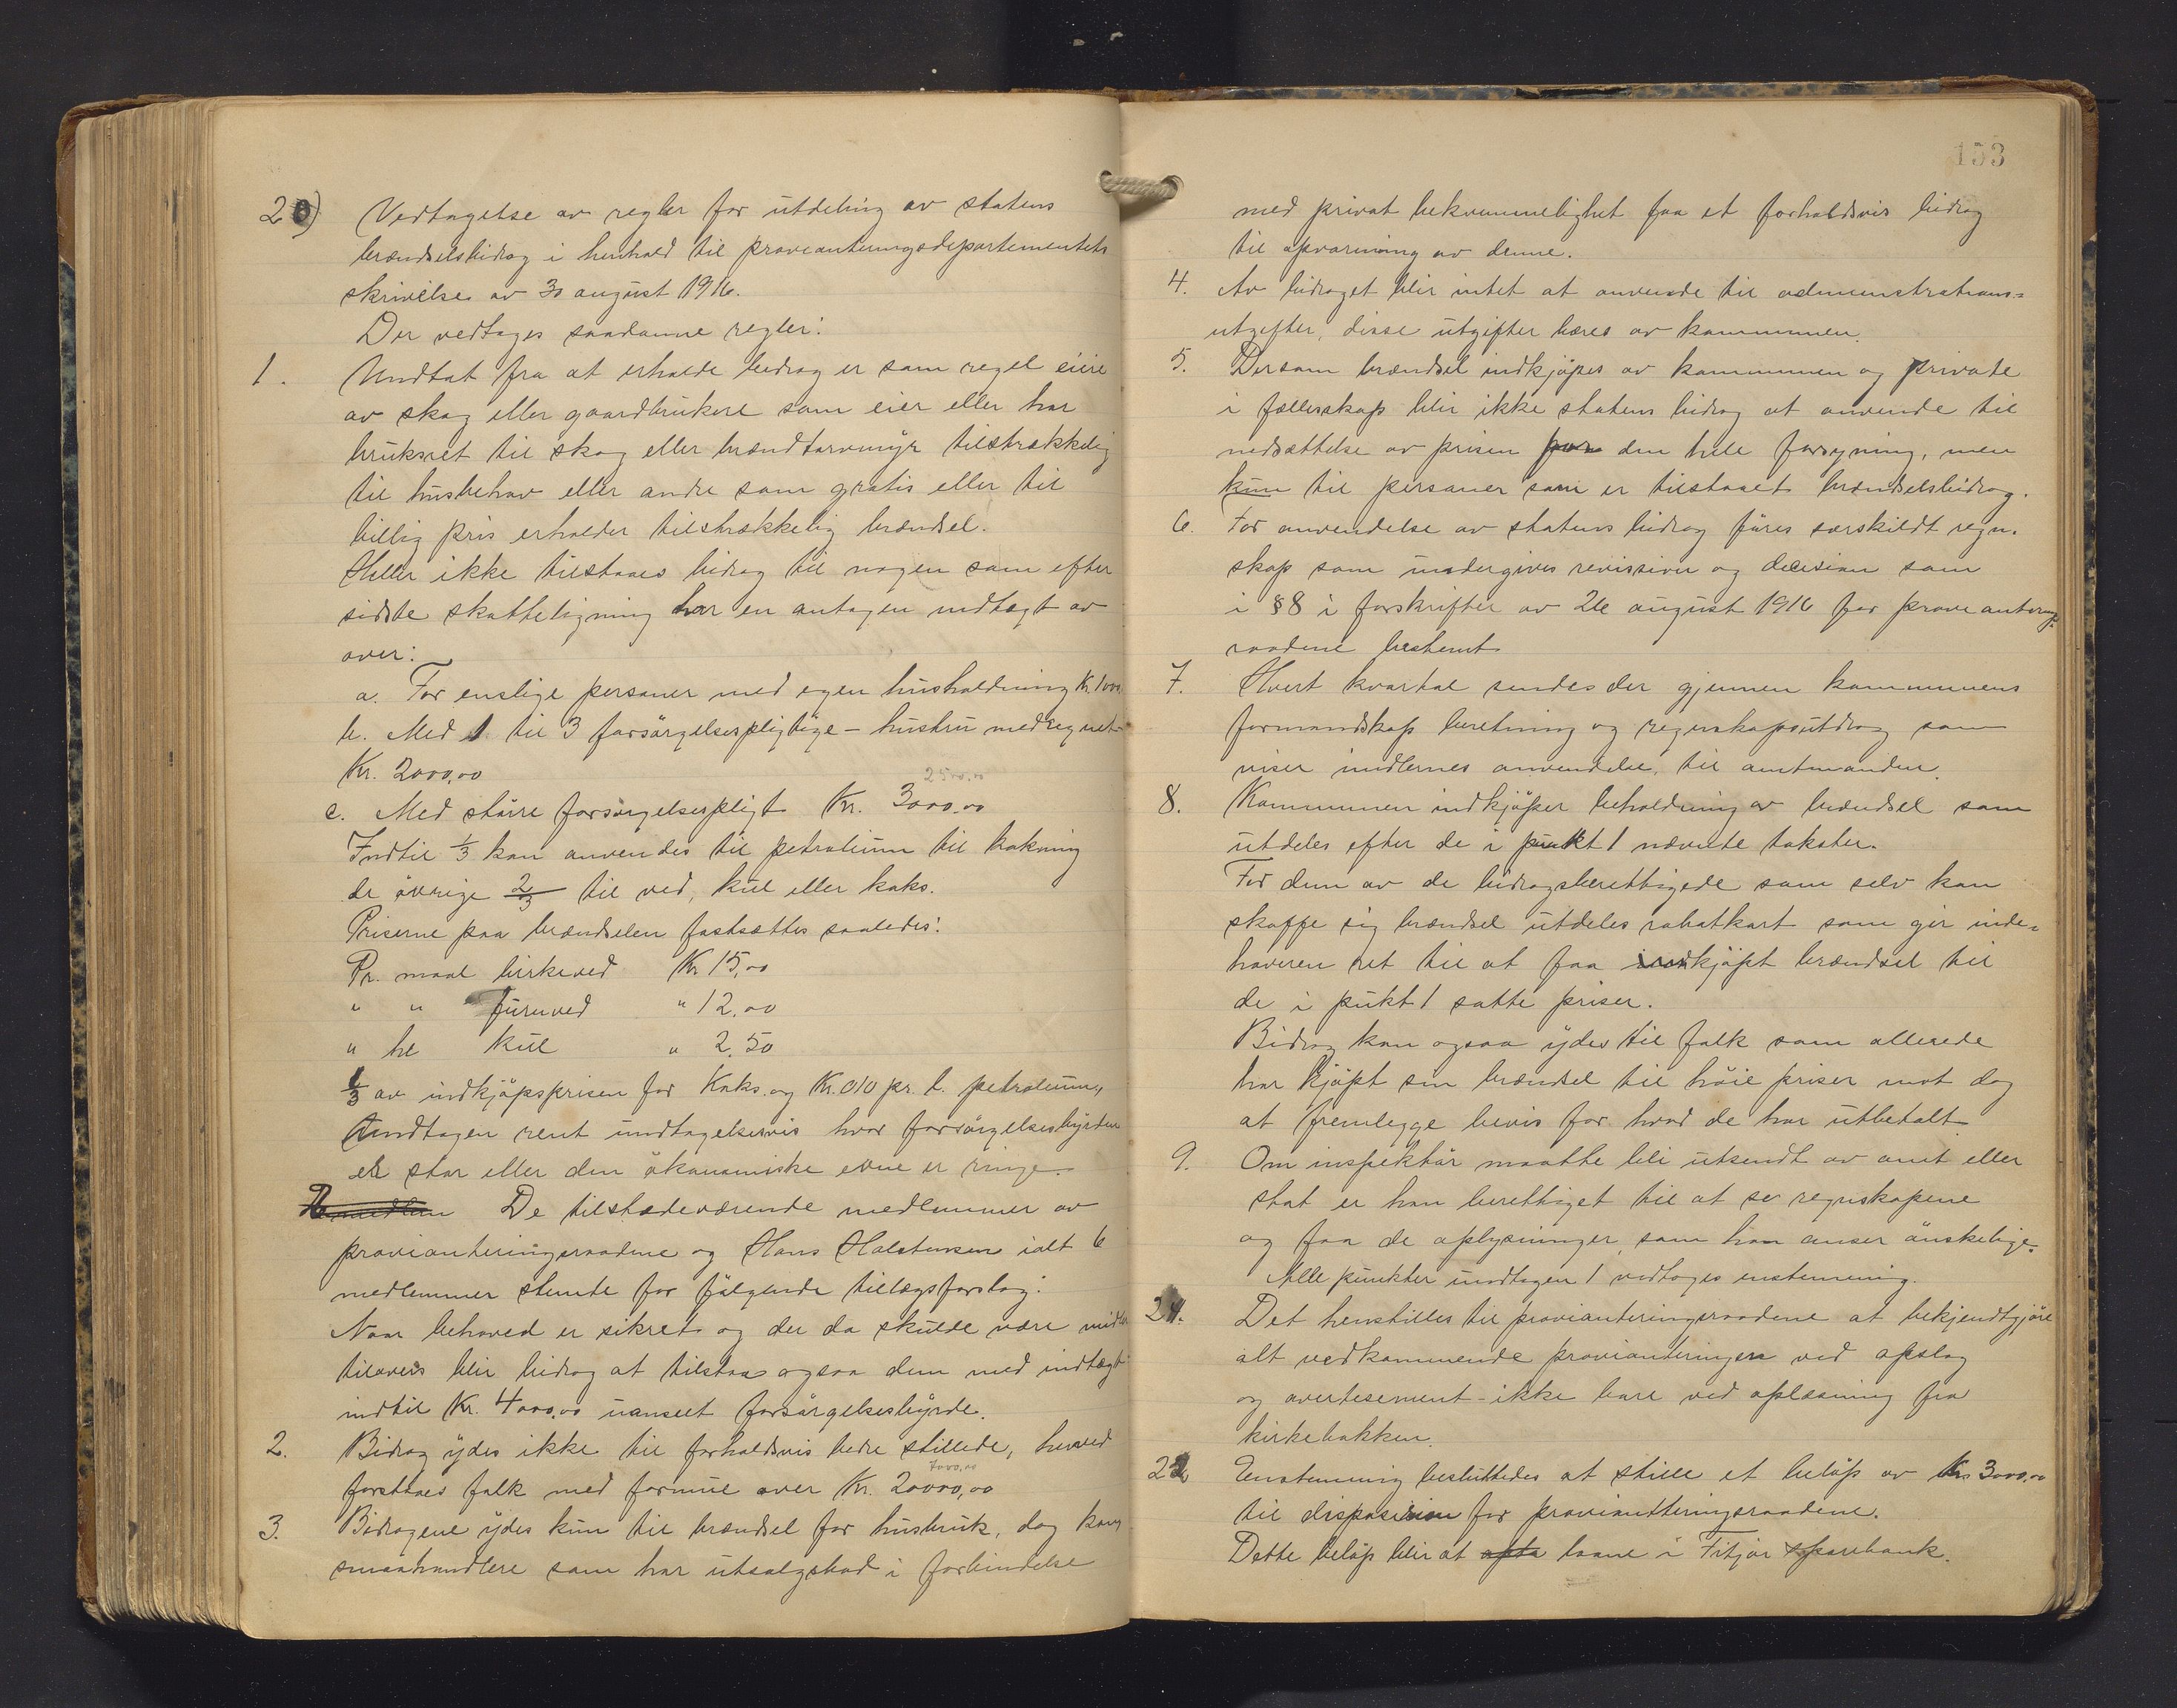 20) Vedtagelse av regler for utdeling av statens
brændselsbidrag i henhold til provianteringsdepartementets
skrivelse av 30 august 1916.
Der vedtages saadanne regler:
1. Undtat fra at erholde bidrag er som regel eiere
av skog eller gaardbrukere som eier eller har
bruksret til skog eller brændtorvmyr tilstrækkelig
til husbehov eller andre som gratis eller til
billig pris erholder tilstrækkelig brændsel.
Heller ikke tilstaaes bidrag til nogen som efter
sidste skatteligning har en antagen indtægt av
over:
a. For enslige personer med egen husholdning Kr. 1000
b. Med 1 til 3 forsørgelsespligtige - hustru medregnet -
Kr. 2000,00
2500,00
c. Med større forsørgelsespligt Kr. 3000,00
Indtil 1/3 kan anvendes til petroleum til kokning
de øvrige 2/3 til ved, kul eller koks.
Priserne paa brændselen fastsættes saaledes:
Pr. maal birkeved Kr 15,00
" " furuved " 12,00
" hl kul " 2,50
1/3 av indkjøpsprisen for Koks. og Kr. 010 pr. l. petroleum,
Undtagen rent undtagelsesvis hvor forsørgelsesbyrden
er stor eller den økonomiske evne er ringe.
De tilstedeværende medlemmer av
provianteringsraadene og Hans Halstensen ialt 6
medlemmer stemte for følgende tillægsforslag:
Naar behoved er sikret og der da skulde være midler
tilovers blir bidrag at tilstaa ogsaa dem med indtægt
indtil Kr. 4000,00 uanseet forsørgelsesbyrde.
2. Bidrag ydes ikke til forholdsvis bedre stillede, hvorved
7000,00
forstaaes folk med formue over Kr. 20000,00
3. Bidragene ydes kun til brændsel for husbruk, dog kan
smaahandlere som har utsalgsbod i forbindelse
153
med privat bekvemmelighet faa et forholdsvis bidrag
til opvarming av denne.
4. Av bidraget blir intet at anvende til administrations=
utgifter, disse utgifter bæres av kommunen.
5. Dersom brændsel indkjøpes av kommunen og private
i fællesskap blir ikke statens bidrag at anvende til
nedsættelse av prisen for den hele forsyning, men
kun til personer som er tilstaaet brændselsbidrag.
6. For anvendelse av statens bidrag føres særskildt regn.
skap som undergives revission og decision som
i § 8 i forskrifter av 26 august 1916 for provianterings
raadene bestemt
7. Hvert kvartal sendes der gjennem kommunens
formandskap beretning og regnskapsutdrag som
viser midlernes anvendelse, til amtmanden.
8. Kommunen indkjøper beholdning av brændsel som
utdeles efter de i punkt 1 nævnte takster.
For dem av de bidragsberettigede som selv kan
skaffe sig brændsel utdeles rabatkort som gir inde=
haveren ret til at faa indkjøpt brændsel til
de i pukt 1 satte priser.
Bidrag kan ogsaa ydes til folk som allerede
har kjøpt sin brændsel til høie priser mot dog
at fremlegge bevis for hvad de har utbetalt
9. Om inspektør maatte bli utsendt av amt eller
stat er han berettiget til at se regnskapene
og faa de oplysninger, som han anser ønskelige.
Alle punkter undtagen 1 vedtoges enstemmig.
21. Det henstilles til provianteringsraadene at bekjendtgjøre
alt vedkommende provianteringen ved opslag
og avertesement - ikke bare ved oplæsning fra
kirkebakken.
22 Enstemmig besluttedes at stille et beløp av Kr. 3000,00
til disposision for provianteringsraadene.
Dette beløp blir at opta laane i Fitjar sparebank.